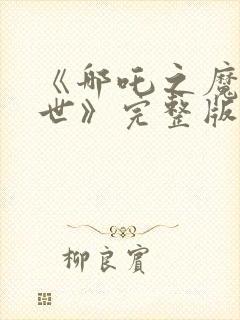 《哪吒之魔
世》完整版
柳良宾